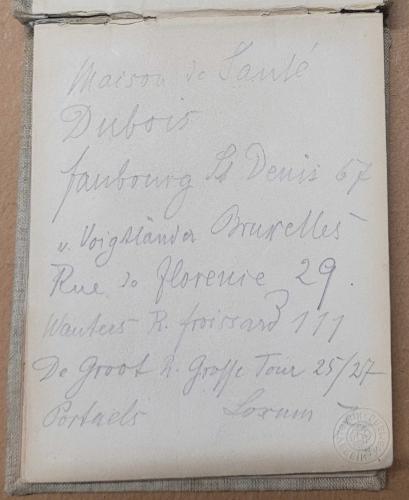 Maison de Santé
Dubois
faubourg St Denis 67
v. Voigtländer Bruxelles
Rue de florence 29.
Wauters R. froissard 111
De Groot R. Grosse Tour 25/27
Portaels